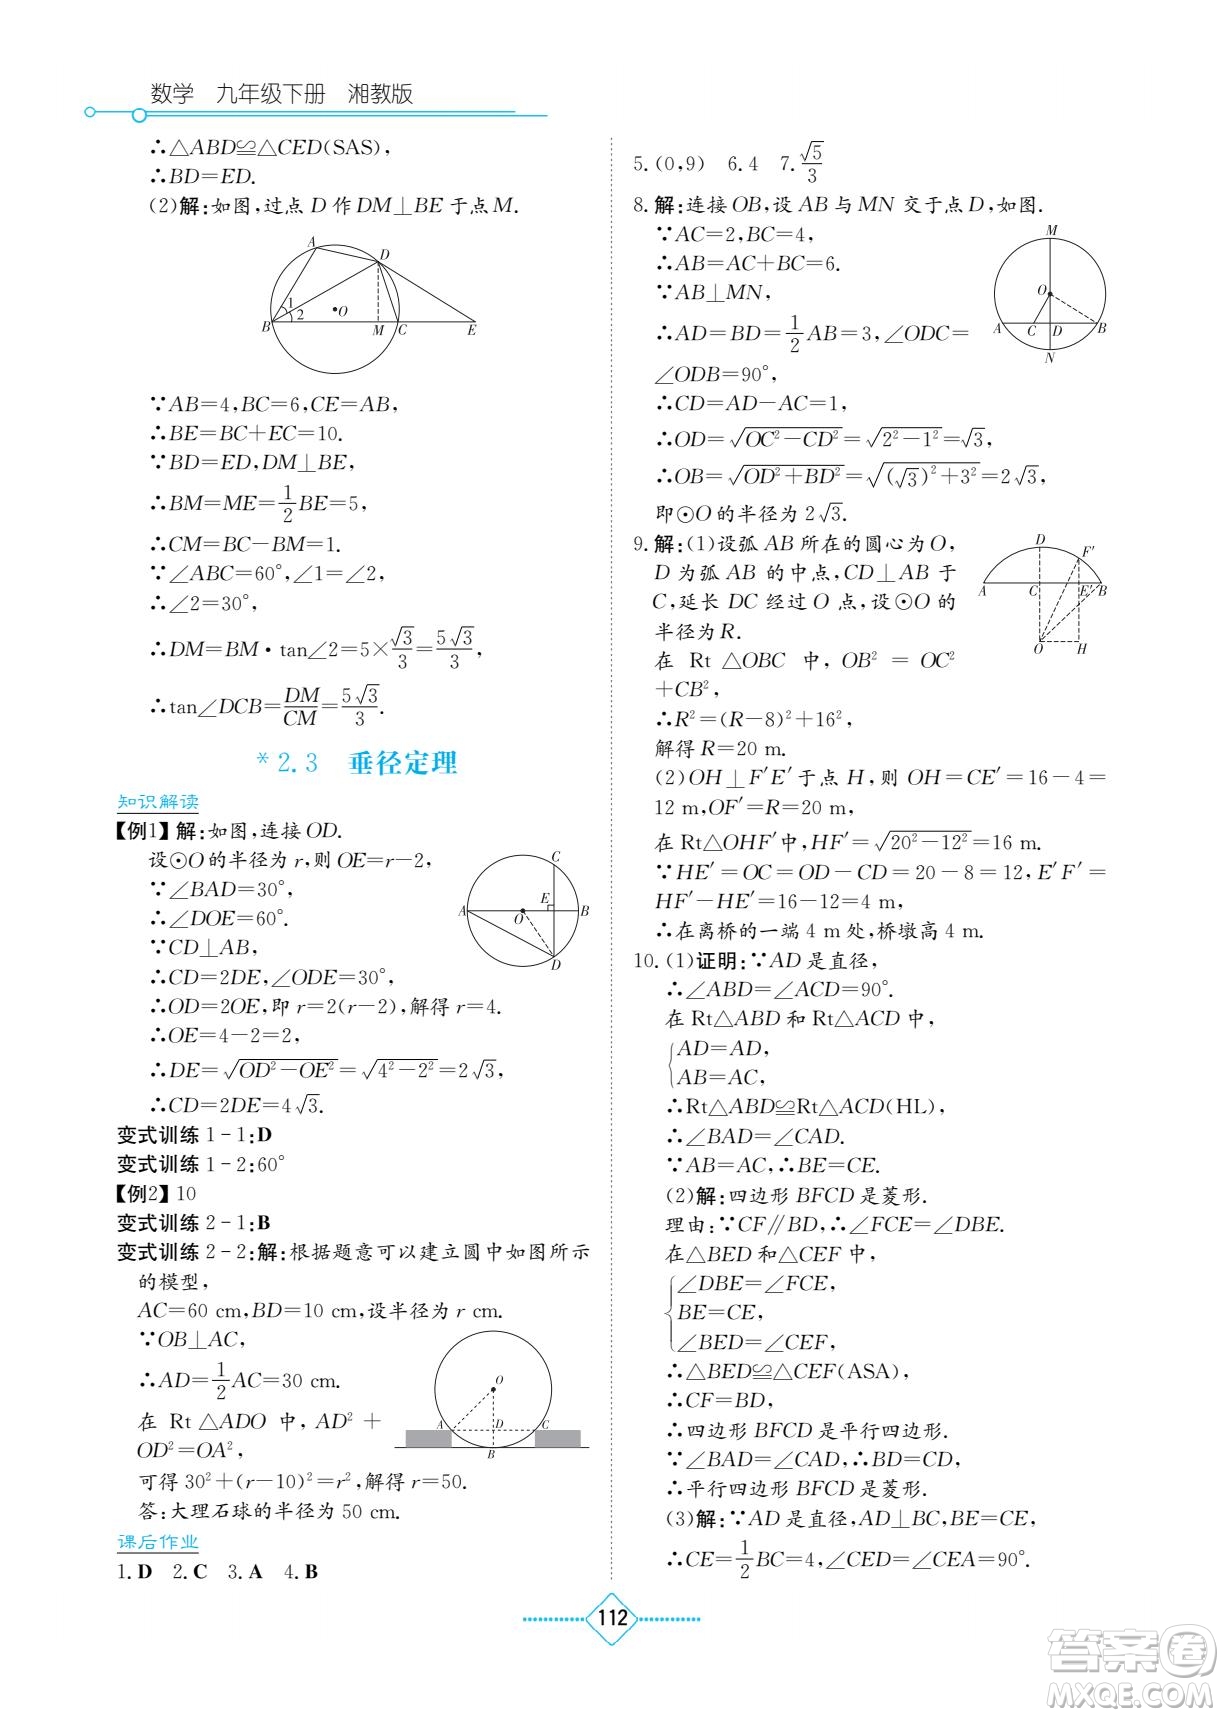 数学 九年级下册 湘教版
∴△ABD≌△CED(SAS),
∴BD=ED.
(2)解:如图,过点 D 作 DM⊥BE 于点 M.
A
D
1
2
O
B
M
C
E
∵AB=4,BC=6,CE=AB,
∴BE=BC+EC=10.
∵BD=ED,DM⊥BE,
∴BM=ME=1/2BE=5,
∴CM=BC-BM=1.
∵∠ABC=60°,∠1=∠2,
∴∠2=30°,
∴DM=BM·tan∠2=5×√3/3=5√3/3,
∴tan∠DCB=DM/CM=5√3/3.
*2.3 垂径定理
知识解读
【例1】解:如图,连接 OD.
设⊙O 的半径为 r,则 OE=r-2,
∵∠BAD=30°,
∴∠DOE=60°.
∵CD⊥AB,
∴CD=2DE,∠ODE=30°,
∴OD=2OE,即 r=2(r-2),解得 r=4.
∴OE=4-2=2,
∴DE=√(OD²-OE²)=√(4²-2²)=2√3,
∴CD=2DE=4√3.
C
E
A
O
B
D
变式训练 1-1:D
变式训练 1-2:60°
【例2】10
变式训练 2-1:B
变式训练 2-2:解:根据题意可以建立圆中如图所示
的模型,
AC=60 cm,BD=10 cm,设半径为 r cm.
∵OB⊥AC,
∴AD=1/2AC=30 cm.
在 Rt△ADO 中,AD²+
OD²=OA²,
可得 30²+(r-10)²=r²,解得 r=50.
答:大理石球的半径为 50 cm.
O
A
D
C
B
课后作业
1.D 2.C 3.A 4.B
5.(0,9) 6.4 7.√5/3
8.解:连接 OB,设 AB 与 MN 交于点 D,如图.
∵AC=2,BC=4,
∴AB=AC+BC=6.
∵AB⊥MN,
∴AD=BD=1/2AB=3,∠ODC=
∠ODB=90°,
∴CD=AD-AC=1,
∴OD=√(OC²-CD²)=√(2²-1²)=√3,
∴OB=√(OD²+BD²)=√((√3)²+3²)=2√3,
即⊙O 的半径为 2√3.
M
O
A
C
D
B
N
9.解:(1)设弧 AB 所在的圆心为 O,
D 为弧 AB 的中点,CD⊥AB 于
C,延长 DC 经过 O 点,设⊙O 的
半径为 R.
在 Rt△OBC 中,OB²=OC²
+CB²,
∴R²=(R-8)²+16²,
解得 R=20 m.
D
F′
A
C
E′
B
O
H
(2)OH⊥F′E′于点 H,则 OH=CE′=16-4=
12 m,OF′=R=20 m,
在 Rt△OHF′中,HF′=√(20²-12²)=16 m.
∵HE′=OC=OD-CD=20-8=12,E′F′=
HF′-HE′=16-12=4 m,
∴在离桥的一端 4 m 处,桥墩高 4 m.
10.(1)证明:∵AD 是直径,
∴∠ABD=∠ACD=90°.
在 Rt△ABD 和 Rt△ACD 中,
AD=AD,
AB=AC,
∴Rt△ABD≌Rt△ACD(HL),
∴∠BAD=∠CAD.
∵AB=AC,∴BE=CE.
(2)解:四边形 BFCD 是菱形.
理由:∵CF∥BD,∴∠FCE=∠DBE.
在△BED 和△CEF 中,
∠DBE=∠FCE,
BE=CE,
∠BED=∠CEF,
∴△BED≌△CEF(ASA),
∴CF=BD,
∴四边形 BFCD 是平行四边形.
∵∠BAD=∠CAD,∴BD=CD,
∴平行四边形 BFCD 是菱形.
(3)解:∵AD 是直径,AD⊥BC,BE=CE,
∴CE=1/2BC=4,∠CED=∠CEA=90°.
112
答案卷
MXQE.COM